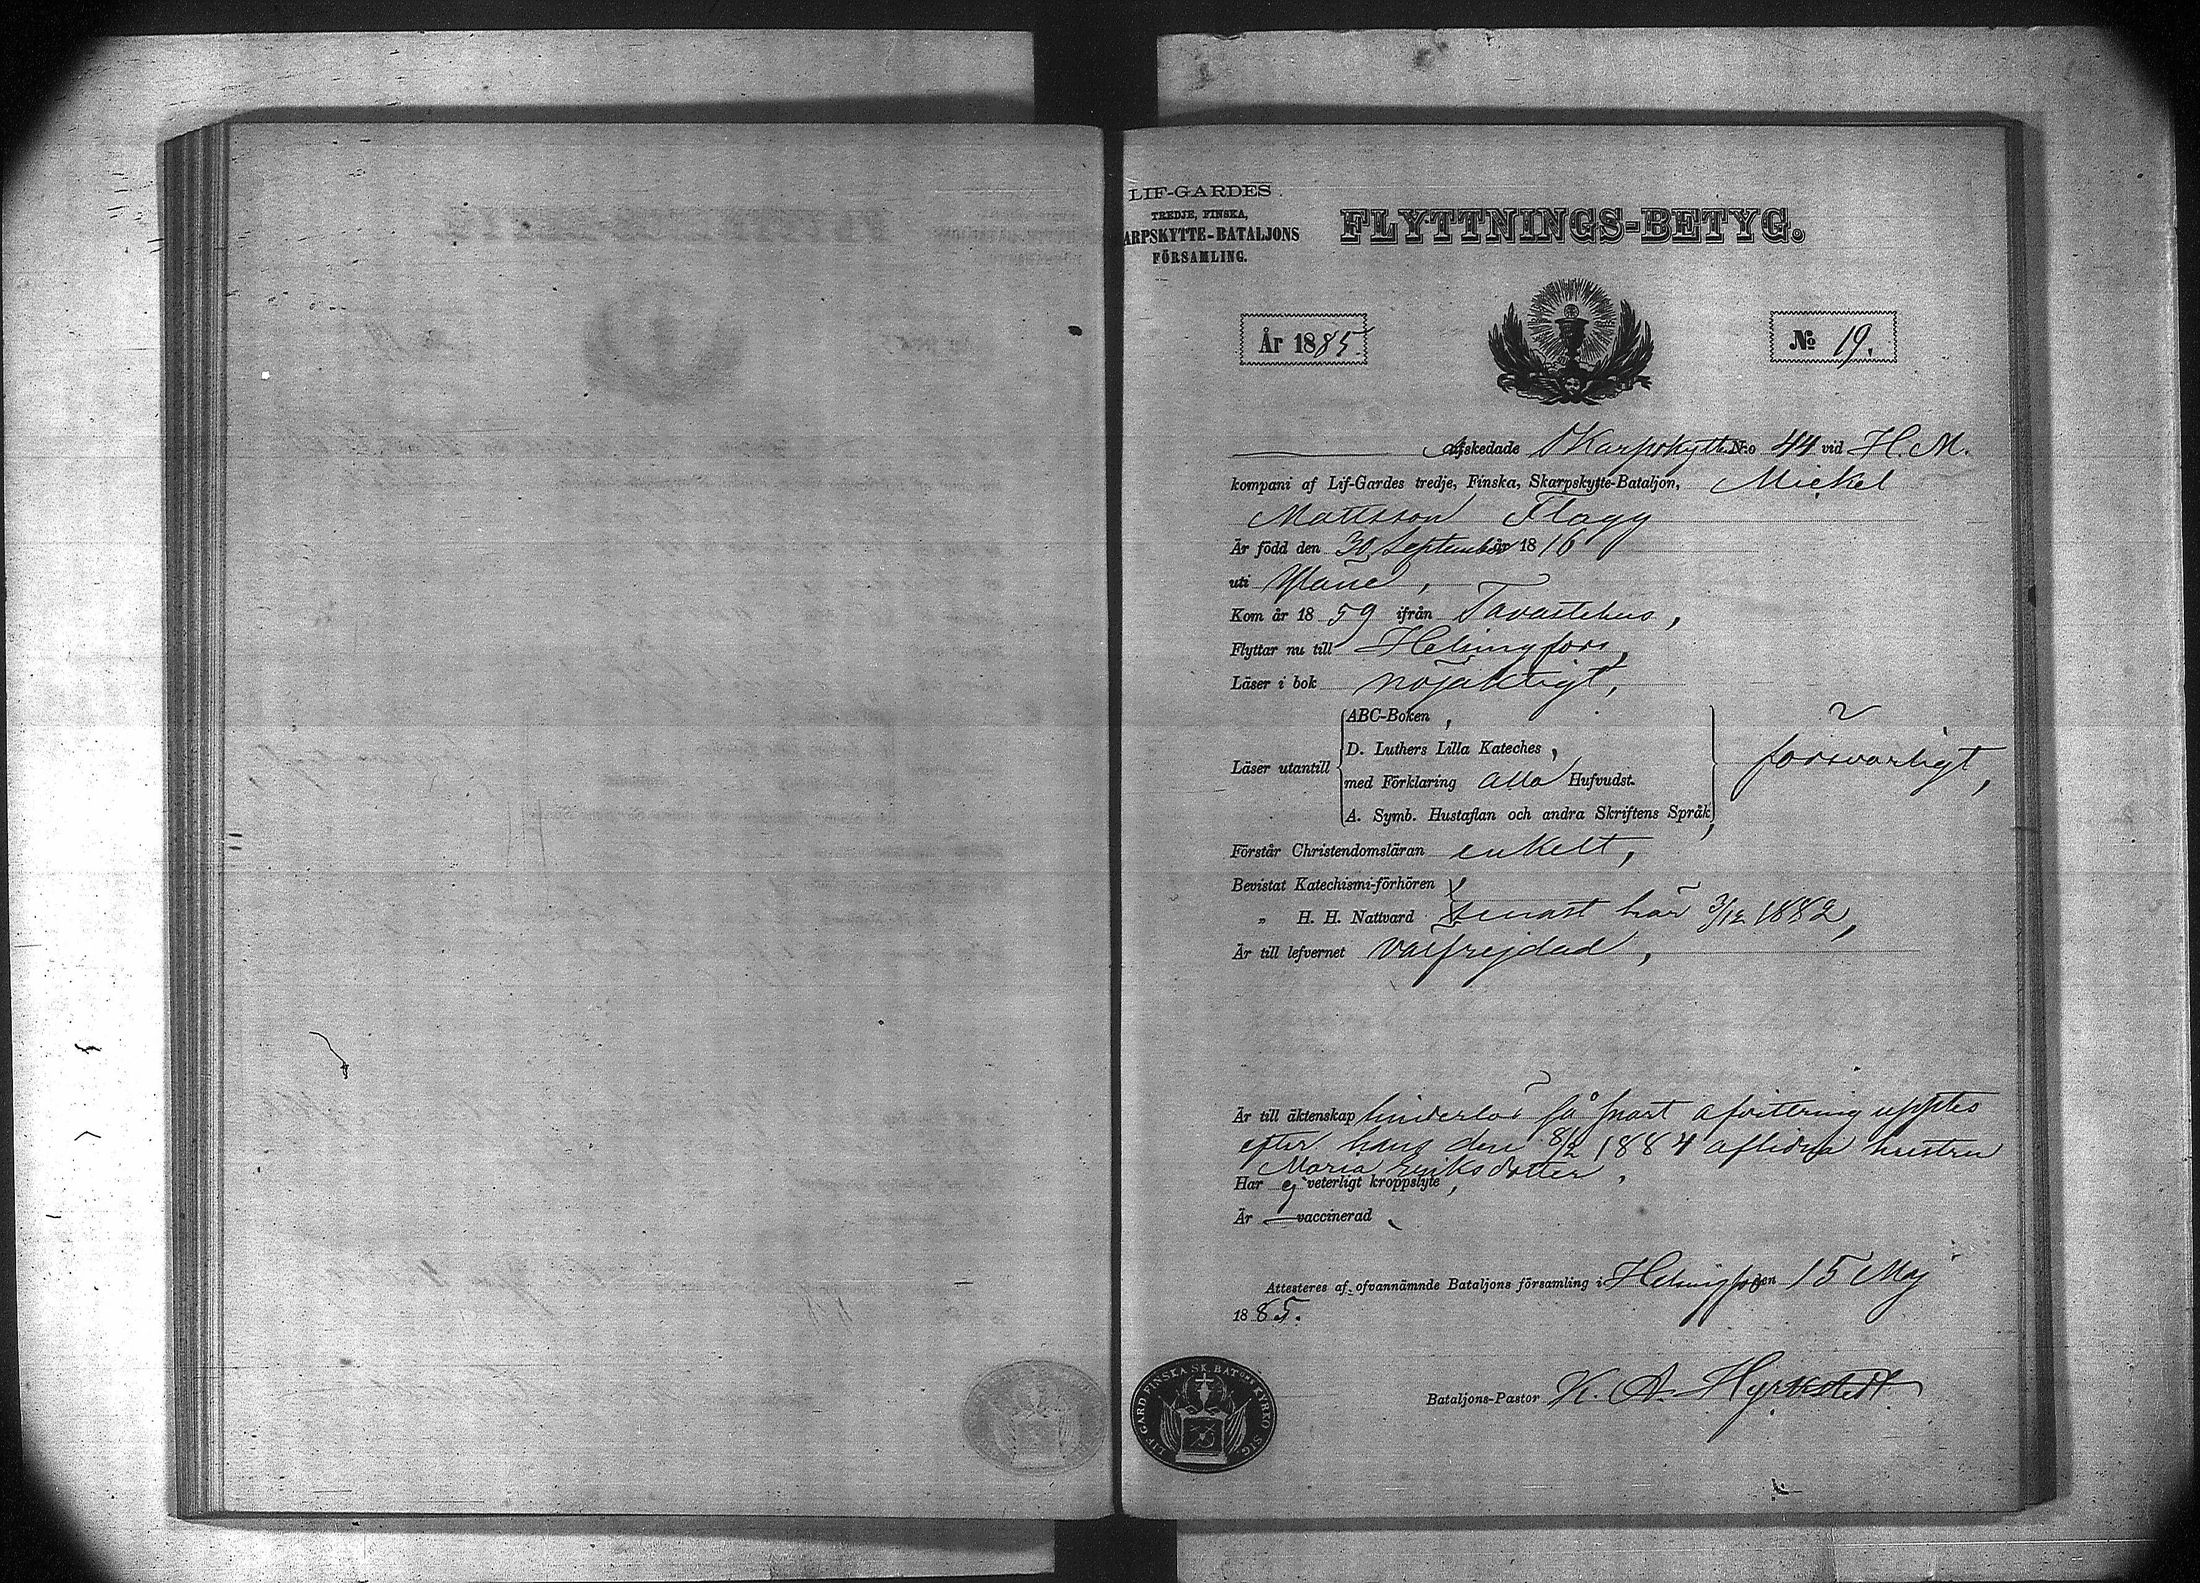 LIF-GARDES
TREDJE, FINSKA,
ARPSKYTTE-BATALJONS
FÖRSAMLING.
FLYTTNINGS-BETYG.
År 1885.
No 19.
Afskedade Skarpskytte No 44 vid H. M.
kompani af Lif-Gardes tredje, Finska, Skarpskytte-Bataljon, Mickel
Mattsson Flagg
Är född den 30 September år 1816
uti Yläne,
Kom år 1859 ifrån Tavastehus,
Flyttar nu till Helsingfors,
Läser i bok nöjaktigt,
Läser utantill
ABC-Boken,
D. Luthers Lilla Kateches,
med Förklaring alla Hufvudst.
A. Symb. Hustaflan och andra Skriftens Språk,
försvarligt,
Förstår Christendomsläran enkelt,
Bevistat Katechismi-förhören
„ H. H. Nattvard senast här 3/12 1882,
Är till lefvernet välfrejdad,
Är till äktenskap hinderlös så snart afvittring upptes
efter hans den 8/2 1884 aflidna hustru
Maria Eriksdotter.
Har ej veterligt kroppslyte,
Är — vaccinerad
Attesteres af ofvannämnde Bataljons församling i Helsingfors den 15 Maj
1885.
Bataljons-Pastor K. A. Hyrkstedt
LIF-GARD FINSKA SK. BATons KYRKO SIG.